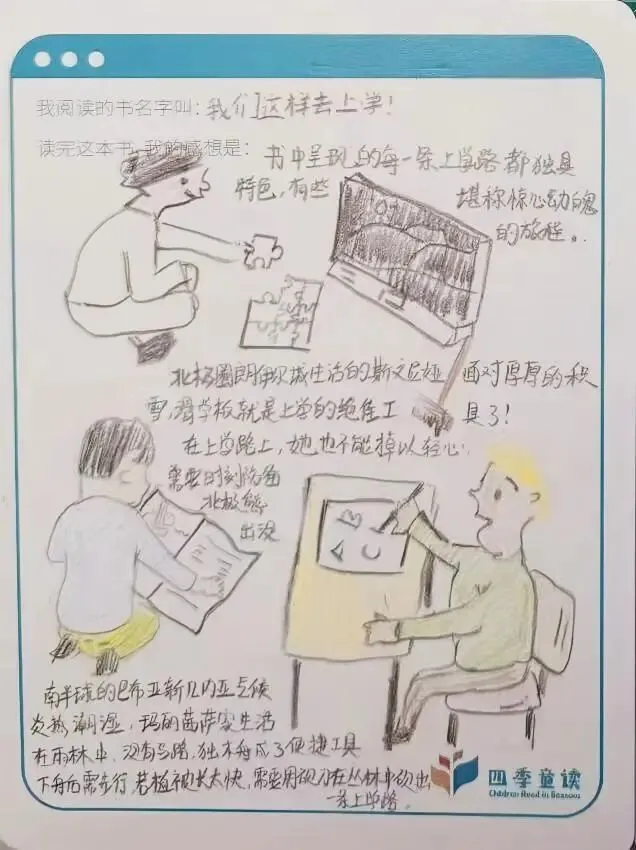 我阅读的书名字叫:我们这样去上学!
读完这本书,我的感想是:书中呈现的每一条上学路都独具
特色,有些堪称惊心动魄
的旅程。
北极圈朗伊尔城生活的斯文尼娅 面对厚厚的积
雪,滑学板就是上学的绝佳工具了!
在上学路上,她也不能掉以轻心.
需要时刻防备
北极熊
出没
A B
C
南半球的巴布亚新几内亚气候
炎热潮湿,玛丽茜萨安生活
在雨林中,没有马路,独木舟成了便捷工具
下舟后需步行,若植被长太快,需要用砍刀在丛林中砍出
一条上学路。
四季童读
Children Read in Seasons